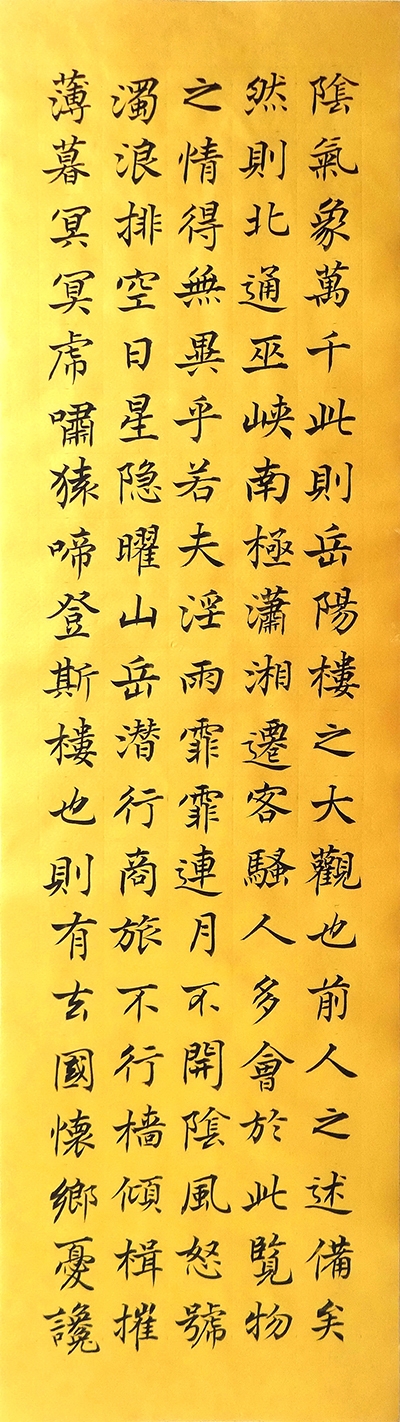 陰氣象萬千此則岳陽樓之大觀也前人之述備矣
然則北通巫峽南極瀟湘遷客騷人多會於此覽物
之情得無異乎若夫淫雨霏霏連月不開陰風怒號
濁浪排空日星隐曜山岳潜行商旅不行檣傾楫摧
薄暮冥冥虎嘯猿啼登斯樓也則有去國懷鄉憂讒